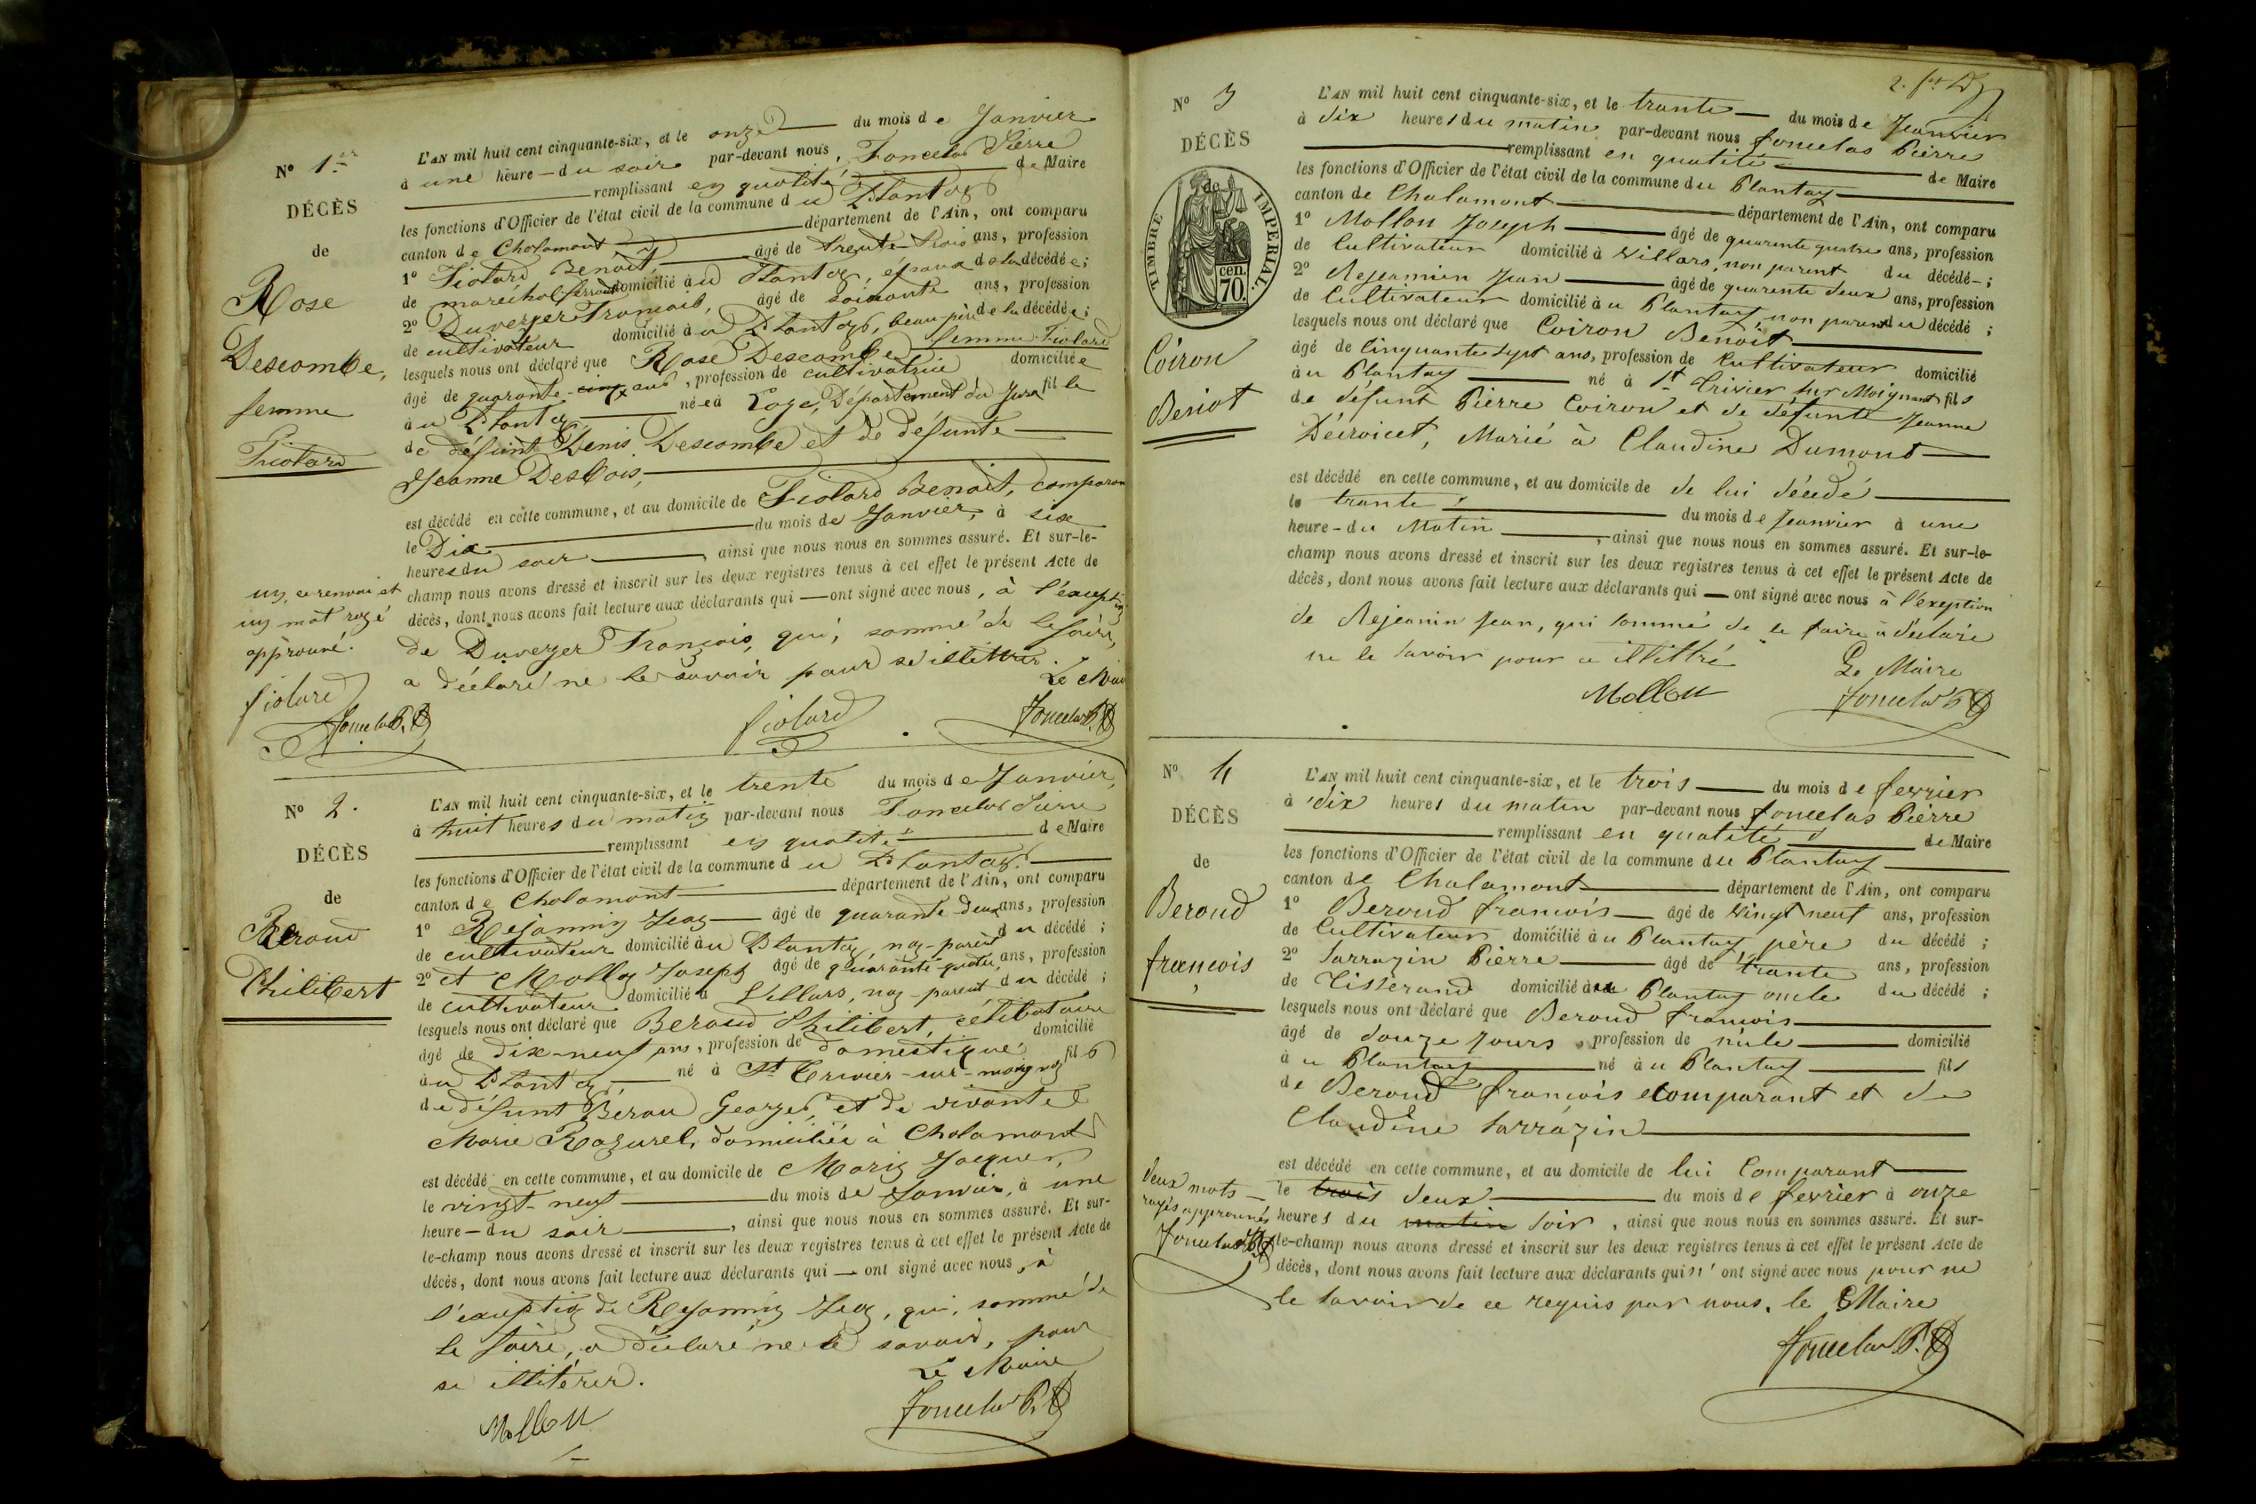 N° 1er
DÉCÈS
de
Rose
Descombe,
femme
Fiolard
L'AN mil huit cent cinquante-six, et le onze du mois de Janvier
à une heure du soir par-devant nous, Foncelas Pierre
remplissant en qualité de Maire
les fonctions d'Officier de l'état civil de la commune du Plantay
canton de Chalamont département de l'Ain, ont comparu
1° Fiolard Benoit, âgé de trente-trois ans, profession
de maréchal ferrant domicilié au Plantay, époux de la décédée;
2° Duverger François, âgé de soixante ans, profession
de cultivateur domicilié au Plantay, beau père de la décédée;
lesquels nous ont déclaré que Rose Descombe femme Fiolard
âgé de quarante-cinq ans, profession de cultivatrice domiciliée
au Plantay, née à Loge, Département du Jura fille
de défunt Denis Descombe et de défunte
Jeanne Desbois,
est décédé en cette commune, et au domicile de Fiolard Benoit, comparant
le Dix du mois de Janvier, à six
heures du soir, ainsi que nous nous en sommes assuré. Et sur-le-
champ nous avons dressé et inscrit sur les deux registres tenus à cet effet le présent Acte de
décès, dont nous avons fait lecture aux déclarants qui ont signé avec nous, à l'exception
de Duverger François, qui, sommé de le faire,
a déclaré ne le savoir pour se illettrer.
Le Maire
un mot rayé
approuvé.
fiolard
Foncelas P.
fiolard
Foncelas P.
N° 2.
DÉCÈS
de
Beroud
Philibert
L'AN mil huit cent cinquante-six, et le trente du mois de Janvier,
à huit heures du matin par-devant nous Foncelas Pierre
remplissant en qualité de Maire
les fonctions d'Officier de l'état civil de la commune du Plantay
canton de Chalamont département de l'Ain, ont comparu
1° Rejannin Jean âgé de quarante-deux ans, profession
de cultivateur domicilié au Plantay, non-parent du décédé;
2° et Mollon Joseph âgé de quarante-quatre ans, profession
de cultivateur domicilié à Villars, non-parent du décédé;
lesquels nous ont déclaré que Beroud Philibert, célibataire
âgé de dix-neuf ans, profession de domestique domicilié
au Plantay, né à St Trivier-sur-moignon fils
de défunt Bérou Georges, et de vivante
Marie Razurel, domiciliée à Chalamont
est décédé en cette commune, et au domicile de Marin Jacques,
le vingt-neuf du mois de Janvier, à une
heure du soir, ainsi que nous nous en sommes assuré. Et sur-
le-champ nous avons dressé et inscrit sur les deux registres tenus à cet effet le présent Acte de
décès, dont nous avons fait lecture aux déclarants qui ont signé avec nous, à
l'exception de Rejannin Jean, qui, sommé de
le faire, a déclaré ne le savoir, pour
se illitérer.
Le Maire
Mollon
Foncelas P.
N° 3
DÉCÈS
de
TIMBRE IMPERIAL.
70 cen.
Coiron
Benoit
L'AN mil huit cent cinquante-six, et le trante du mois de Jeanvier
à dix heures du matin par-devant nous foncelas Pierre
remplissant en qualité de Maire
les fonctions d'Officier de l'état civil de la commune du Plantay
canton de Chalamont département de l'Ain, ont comparu
1° Mollon Joseph âgé de quarente quatre ans, profession
de Cultivateur domicilié à Villars, non parent du décédé;
2° Rejeannin Jean âgé de quarente deux ans, profession
de Cultivateur domicilié au Plantay non parent du décédé;
lesquels nous ont déclaré que Coiron Benoit
âgé de Cinquante sept ans, profession de Cultivateur domicilié
au Plantay né à St Trivier sur Moignant fils
de défunt Pierre Coiron et de défunte Jeanne
Décroicet, Marié à Claudine Dumont
est décédé en cette commune, et au domicile de de lui décédé
le trante du mois de Jeanvier à une
heure du Matin, ainsi que nous nous en sommes assuré. Et sur-le-
champ nous avons dressé et inscrit sur les deux registres tenus à cet effet le présent Acte de
décès, dont nous avons fait lecture aux déclarants qui ont signé avec nous à l'exeption
de Rejeanin Jean, qui sommé de le faire a déclaré
ne le savoir pour ce illittré
Le Maire
Mollon
Foncelas P.
N° 4
DÉCÈS
de
Beroud
françois
L'AN mil huit cent cinquante-six, et le trois du mois de fevrier
à dix heures du matin par-devant nous foncelas Pierre
remplissant en qualité de Maire
les fonctions d'Officier de l'état civil de la commune du Plantay
canton de Chalamont département de l'Ain, ont comparu
1° Beroud francois âgé de vingt neuf ans, profession
de Cultivateur domicilié au Plantay père du décédé;
2° Sarrazin Pierre âgé de trante ans, profession
de Tisserand domicilié au Plantay oncle du décédé;
lesquels nous ont déclaré que Beroud francois
âgé de douze jours, profession de nule domicilié
au Plantay né au Plantay fils
de Beroud françois comparant et de
Claudine Sarrazin
est décédé en cette commune, et au domicile de lui Comparant
le trois deux du mois de fevrier à onze
heures du matin soir, ainsi que nous nous en sommes assuré. Et sur-
le-champ nous avons dressé et inscrit sur les deux registres tenus à cet effet le présent Acte de
décès, dont nous avons fait lecture aux déclarants qui n'ont signé avec nous pour ne
le savoir de ce requis par nous. le Maire
deux mots
rayés approuvés
Foncelas P.
Foncelas P.